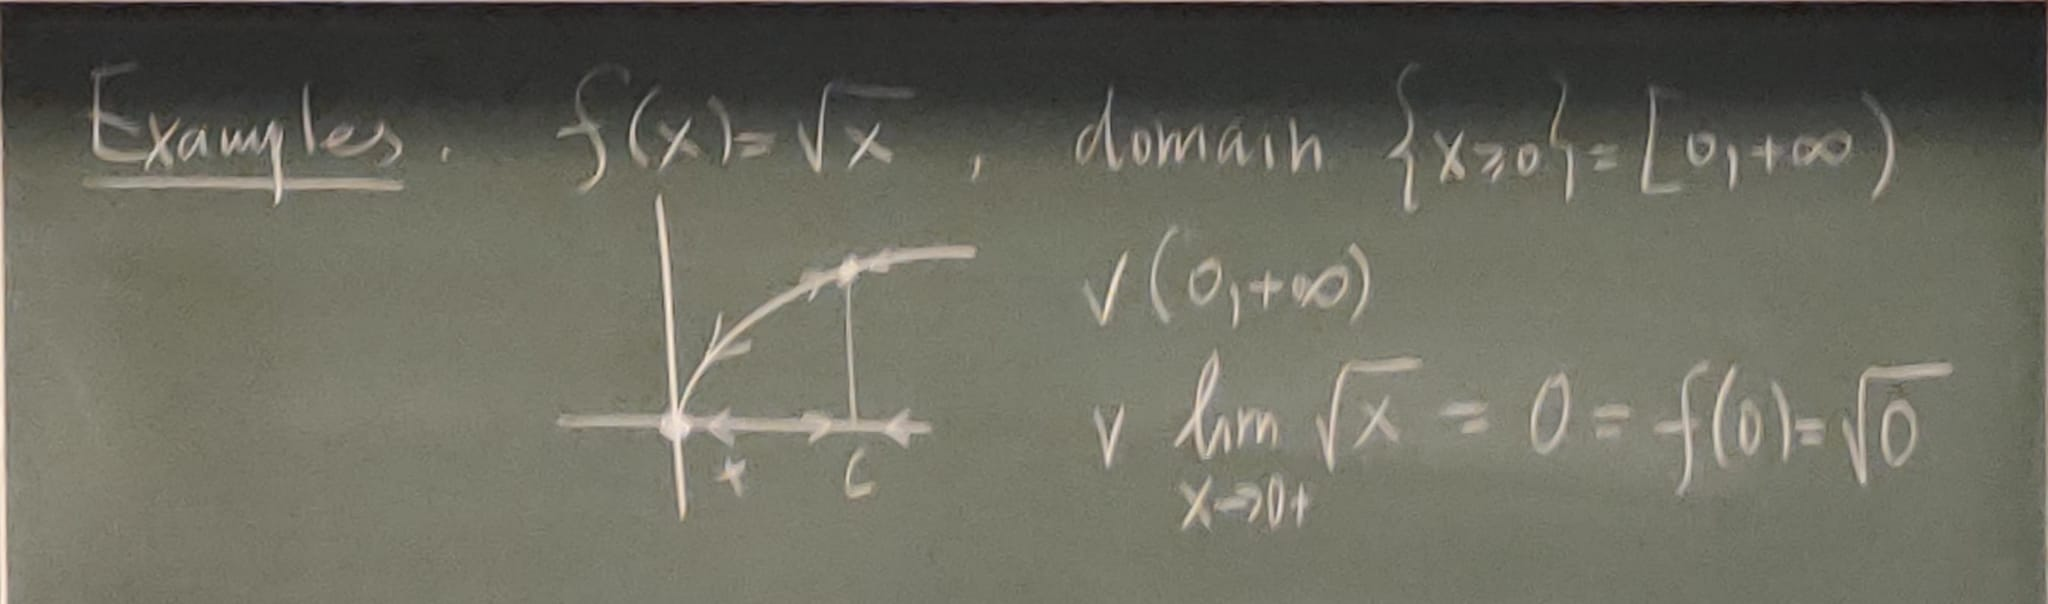 Examples. f(x)=√x , domain {x≥0}=[0,+∞)
√(0,+∞)
√ lim √x = 0 = f(0)=√0
x→0+
x c